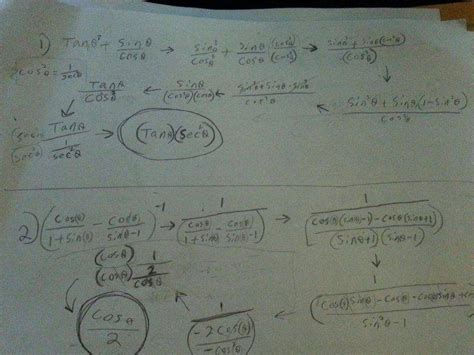 1) Tanθ² + sinθ/cosθ → sinθ²/cosθ² + sinθ/cosθ (cosθ²/cosθ²) → sinθ² + sinθ(cos²θ)/(cos²θ)
cos²θ = 1/sec²θ
Tanθ/cosθ ← sinθ/(cosθ)(cosθ) ← sinθ² + sinθ - sinθ²/cos²θ ← sin²θ + sinθ(1-sin²θ)/cos²θ
Tanθ/(1/sec²θ) → (Tanθ)(sec²θ)
2) (cos(θ)/1+sin(θ) - cos(θ)/sinθ-1)⁻¹ → 1/(cosθ/1+sinθ - cosθ/sinθ-1) → 1/(cosθ(sinθ-1) - cosθ(sinθ+1)/(sinθ+1)(sinθ-1))
(cosθ)/(cosθ) 1/(2/cosθ) ← 1/(-2cos(θ)/-cos²θ) ← 1/(cosθ sinθ - cosθ - cosθ sinθ + cos/sin²θ-1)
cosθ/2